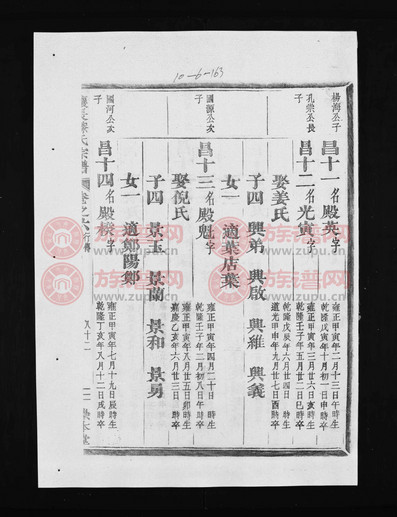 10-6-163
楊海公子
昌十一名殿英字
雍正甲寅年二月十三日午時生
乾隆戊寅年十月初一日申時卒
孔榮公長子
昌十二名光寅字
雍正甲寅年三月廿六日亥時生
乾隆壬子年五月廿二日巳時卒
娶姜氏
乾隆戊辰年六月廿四日 時生
道光甲申年九月廿七日酉時卒
子四 興弟 興啟 興維 興義
女一 適葉店葉
國源公次子
昌十三名殿魁字
雍正甲寅年四月二十日 時生
乾隆壬子年二月初八日午時卒
娶倪氏
雍正甲寅年八月廿五日卯時生
嘉慶乙亥年六月廿三日 時卒
子四 景玉 景蘭 景和 景勇
女一 適鄭陽鄭
國河公次子
昌十四名殿樑字
雍正甲寅年七月十九日辰時生
乾隆丁亥年八月十二日戌時卒
氏宗譜 卷之六 行傳
敦本堂
族譜网
www.zupu.cn